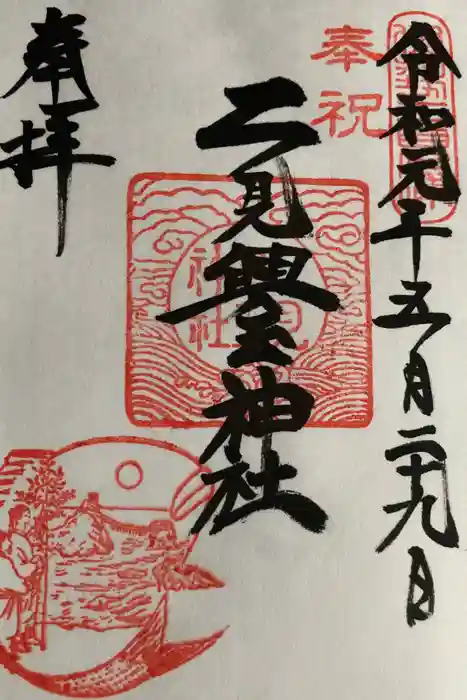 令和元年五月二十九日
奉祝
二見興玉神社
奉拝